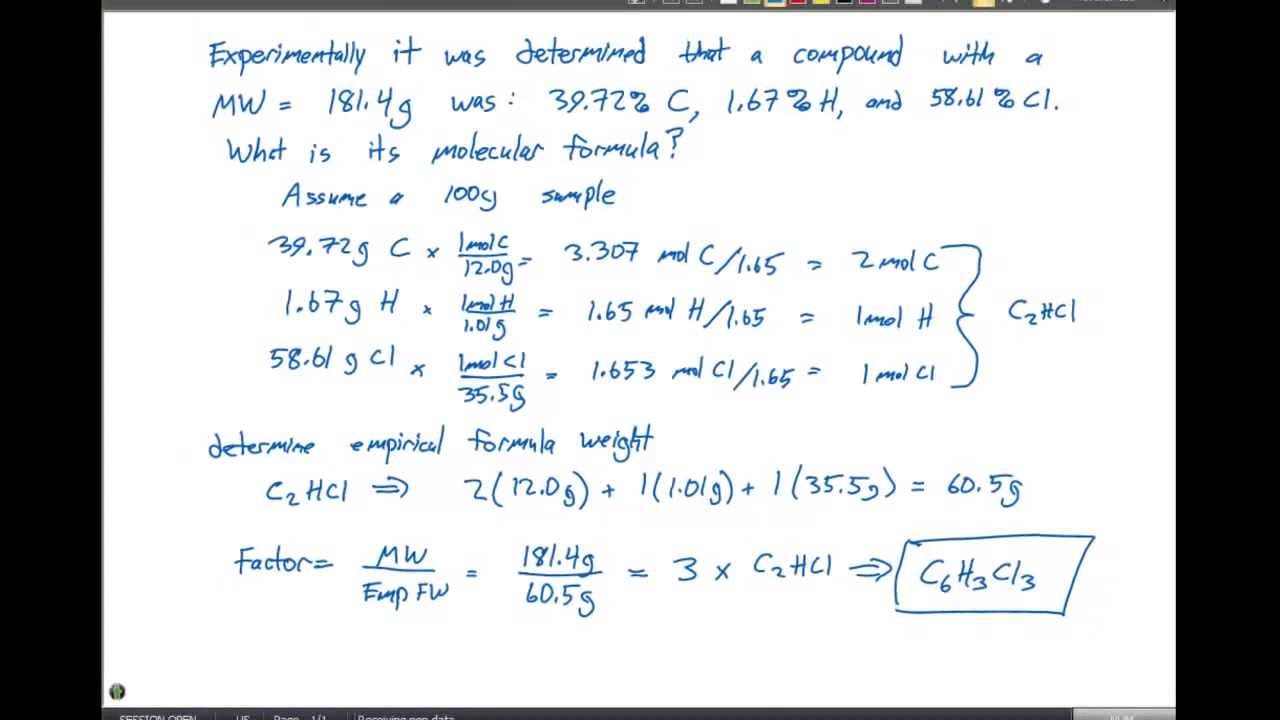 Experimentally it was determined that a compound with a
MW = 181.4g was: 39.72% C, 1.67% H, and 58.61% Cl.
What is its molecular formula?
Assume a 100g sample
39.72g C × 1mol C/12.0g = 3.307 mol C/1.65 = 2 mol C
1.67g H × 1mol H/1.01g = 1.65 mol H/1.65 = 1mol H
C₂HCl
58.61 g Cl × 1mol Cl/35.5g = 1.653 mol Cl/1.65 = 1 mol Cl
determine empirical formula weight
C₂HCl ⇒ 2(12.0g) + 1(1.01g) + 1(35.5g) = 60.5g
Factor = MW/Emp FW = 181.4g/60.5g = 3 × C₂HCl ⇒ C₆H₃Cl₃